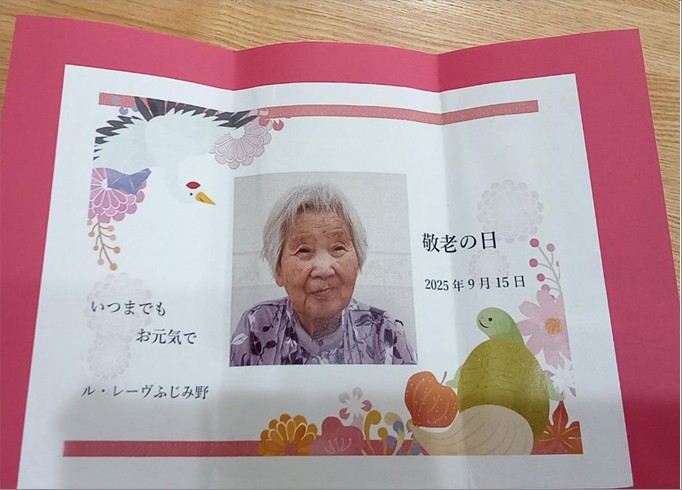 敬老の日
2025年9月15日
いつまでも
お元気で
ル・レーヴふじみ野